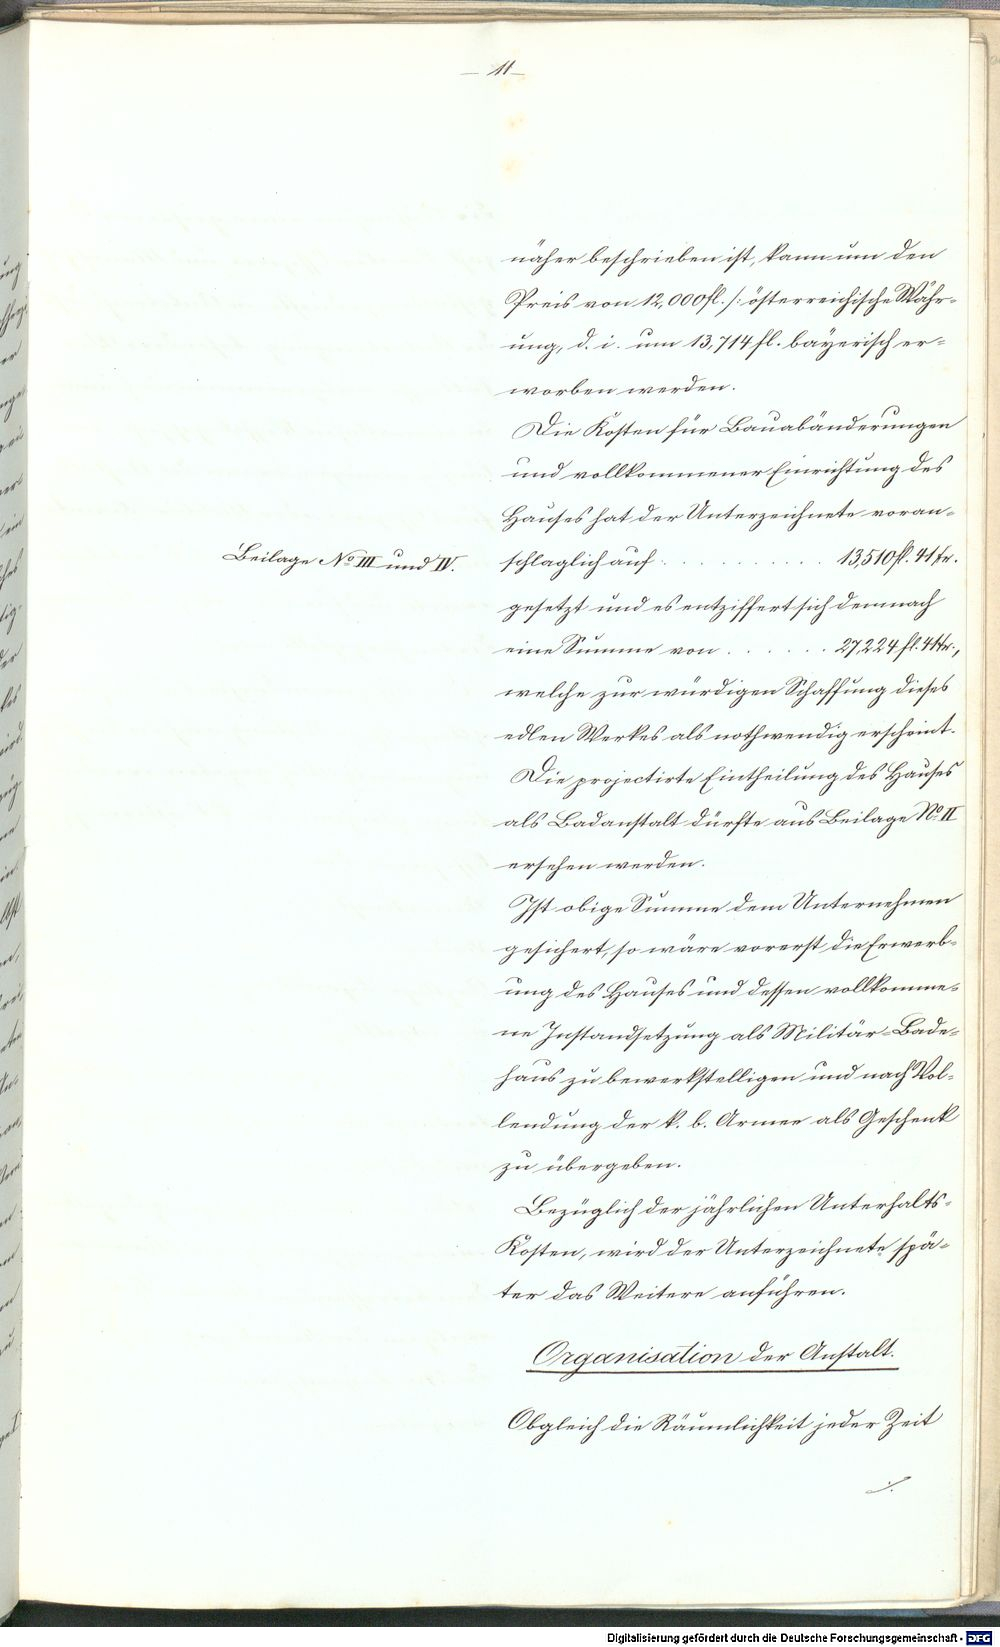 — 11 —
näher beschrieben ist, kann um den
Preis von 12,000 fl. /: österreichische Währ-
ung, d. i. um 13,714 fl. bayerisch er-
worben werden.
Die Kosten für Bauabänderungen
und vollkommener Einrichtung des
Hauses hat der Unterzeichnete voran-
Beilage No III und IV.
schlaglich auf . . . . . . . . . . 13,510 fl. 41 kr.
gesetzt und es entziffert sich demnach
eine Summe von . . . . . . 27,224 fl. 41 kr.,
welche zur würdigen Schaffung dieses
edlen Werkes als nothwendig erscheint.
Die projectirte Eintheilung des Hauses
als Badanstalt dürfte aus Beilage No II
ersehen werden.
Ist obige Summe dem Unternehmen
gesichert, so wäre vorerst die Erwerb-
ung des Hauses und dessen vollkomme-
ne Instandsetzung als Militär-Bade-
haus zu bewerkstelligen und nach Vol-
lendung der k. b. Armee als Geschenk
zu übergeben.
Bezüglich der jährlichen Unterhalts-
Kosten, wird der Unterzeichnete spä-
ter das Weitere anführen.
Organisation der Anstalt.
Obgleich die Räumlichkeit jeder Zeit
./.
Digitalisierung gefördert durch die Deutsche Forschungsgemeinschaft - DFG